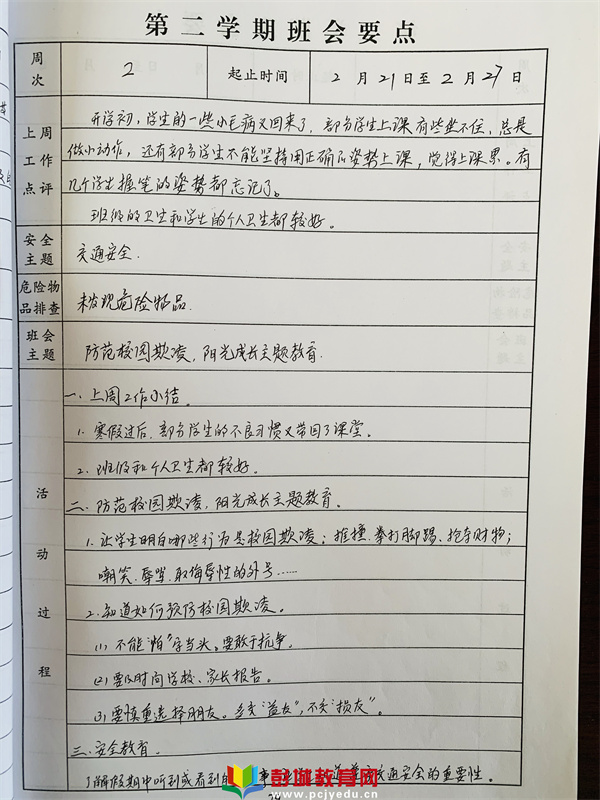 第二学期班会要点
周次 2 起止时间 2月21日至2月27日
上周工作点评
开学初,学生的一些小毛病又回来了,部分学生上课有些坐不住,总是
做小动作,还有部分学生不能坚持用正确的姿势上课,觉得上课累。有
几个学生握笔的姿势都忘记了。
班级的卫生和学生的个人卫生都较好。
安全主题 交通安全.
危险物品排查 未发现危险物品.
班会主题 防范校园欺凌,阳光成长主题教育.
活动过程
一、上周工作小结。
1. 寒假过后,部分学生的不良习惯又带回了课堂。
2. 班级和个人卫生都较好。
二、防范校园欺凌,阳光成长主题教育。
1. 让学生明白哪些行为是校园欺凌;推撞、拳打脚踢、抢夺财物;
嘲笑、辱骂、取侮辱性的外号……
2. 知道如何预防校园欺凌。
(1) 不能"怕"字当头。要敢于抗争。
(2) 要及时向学校、家长报告。
(3) 要慎重选择朋友。多交"益友",不交"损友"。
三、安全教育。
了解假期中听到或看到的 交通安全的重要性。
彭城教育网
www.pcjyedu.cn